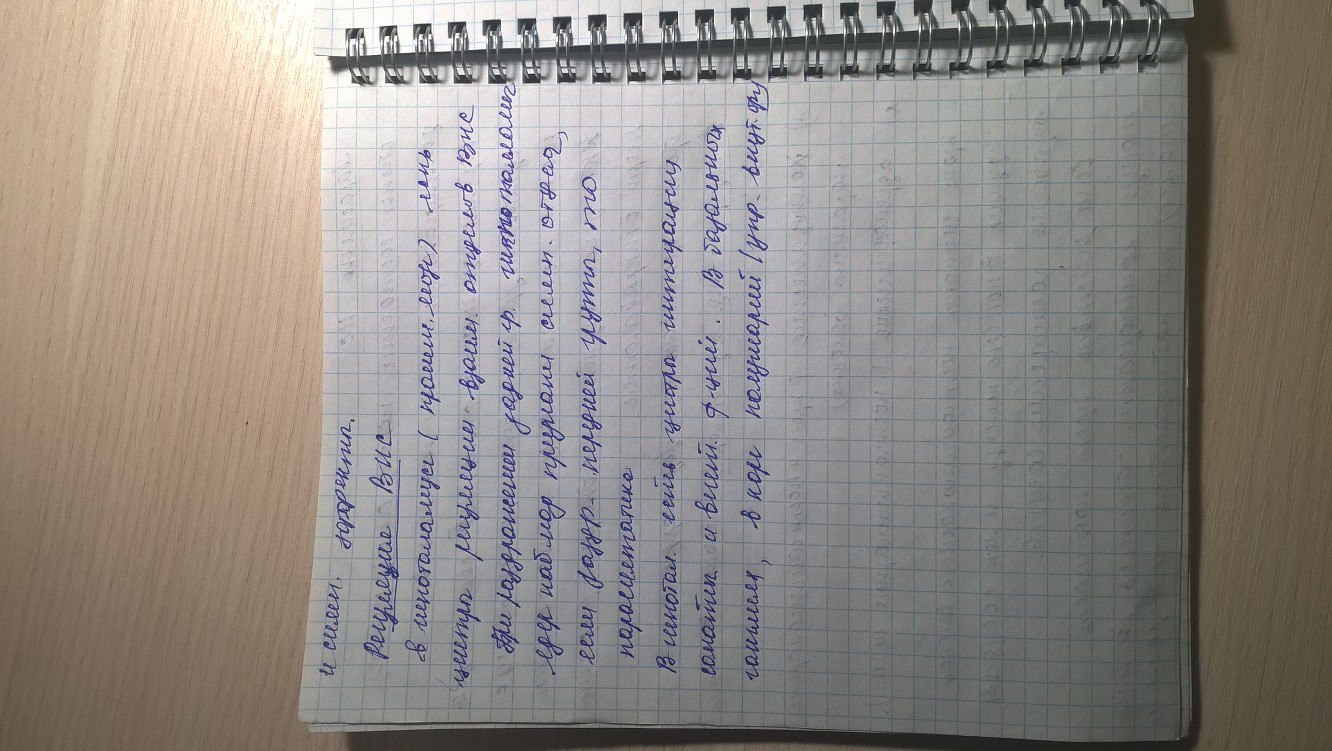 и симп. эффекты.
Регуляция ВНС
в гипоталамусе (промеж. мозг) есть
центры регуляции взаим. отделов ВНС
При раздражении задней гр. гипоталамич
ядер наблюд преоблад симп. отдел,
если раздр. передней группы, то
парасимпатика
В гипотал. есть центры интеграции
соматич. и вегет. ф-ций. В базальных
ганглиях, в коре полушарий (упр. внут. фу